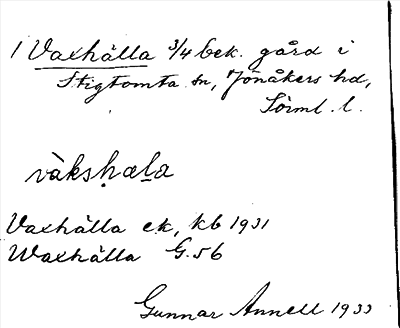 1 Vaxhälla 3/4 bek. gård i
Stigtomta sn, Jönåkers hd,
Sörml. l.
vàksḥæḻa
Vaxhälla ek, kb 1931
Waxhälla G. 56
Gunnar Annell 1933